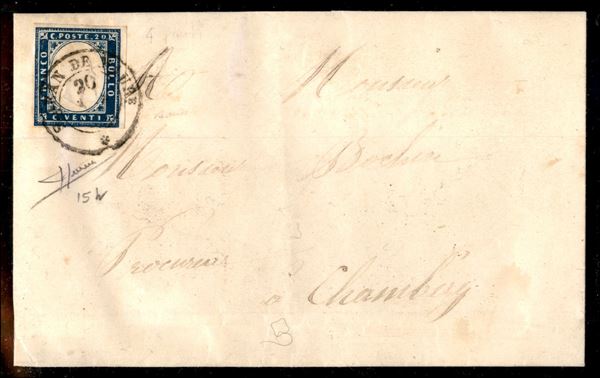 C. POSTE. 20
FRANCO
BOLLO
C. VENTI
20
A Monsieur
Monsieur Bochin
Procureur
à Chambéry
15b